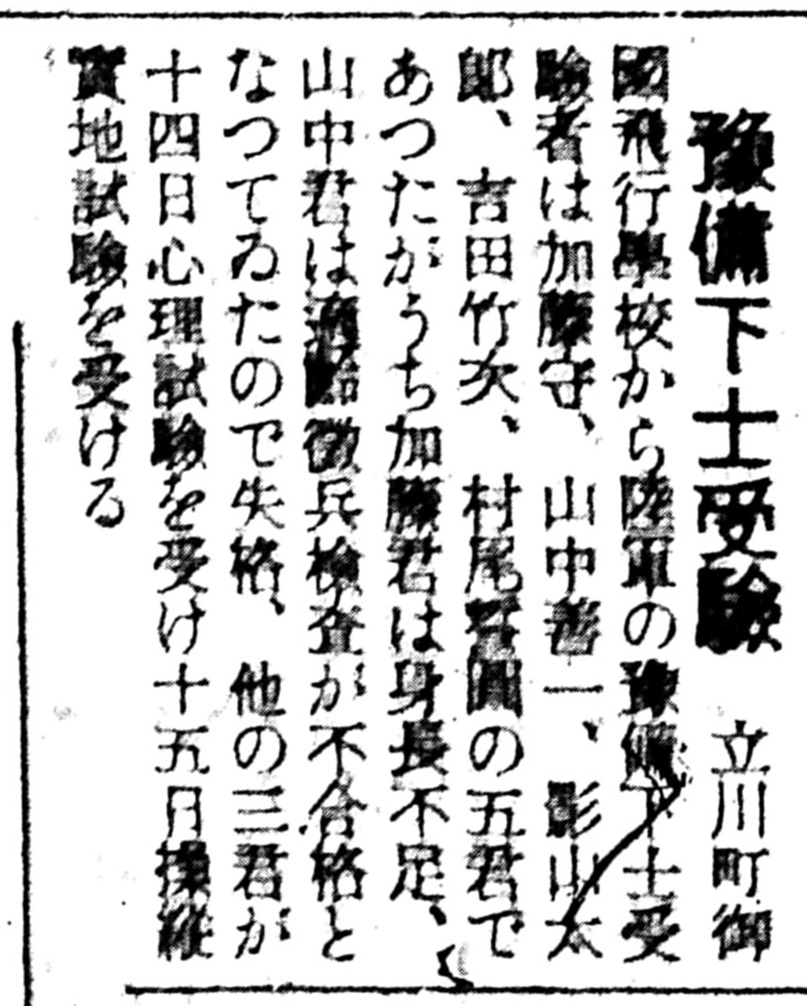 豫備下士受驗 立川町御
國飛行學校から陸軍の豫備下士受
驗者は加藤守、山中善一、影山太
郎、吉田竹次、村尾 の五君で
あつたがうち加藤君は身長不足、
山中君は 徴兵檢査が不合格と
なつてゐたので失格、他の三君が
十四日心理試驗を受け十五日操縱
實地試驗を受ける